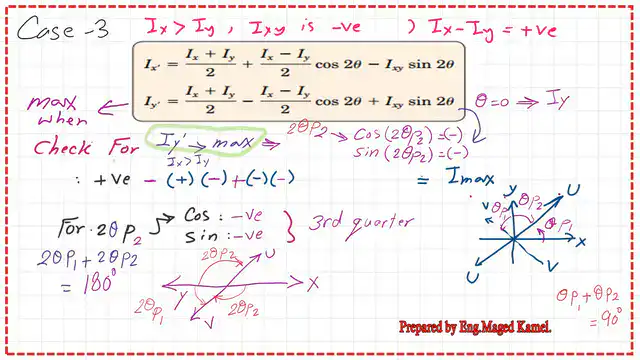 Case -3
Ix > Iy , Ixy is -ve ) Ix - Iy = +ve
Ix' = (Ix + Iy)/2 + (Ix − Iy)/2 cos 2θ − Ixy sin 2θ
Iy' = (Ix + Iy)/2 − (Ix − Iy)/2 cos 2θ + Ixy sin 2θ
θ=0 ⇒ Iy
max
when
Check For Iy' → max ⇒ 2θP2 → Cos(2θP2)=(-)
Ix>Iy
sin(2θP2)=(-)
: +ve - (+)(-) + (-)(-) = Imax
For 2θP2 → Cos : -ve
sin : -ve
3rd quarter
2θP1 + 2θP2
= 180°
2θP2
U
X
Y
2θP1
V
2θP2
y
U
V
θP1
θP2
θP1
x
U
V
θP1 + θP2
= 90°
Prepared by Eng.Maged Kamel.